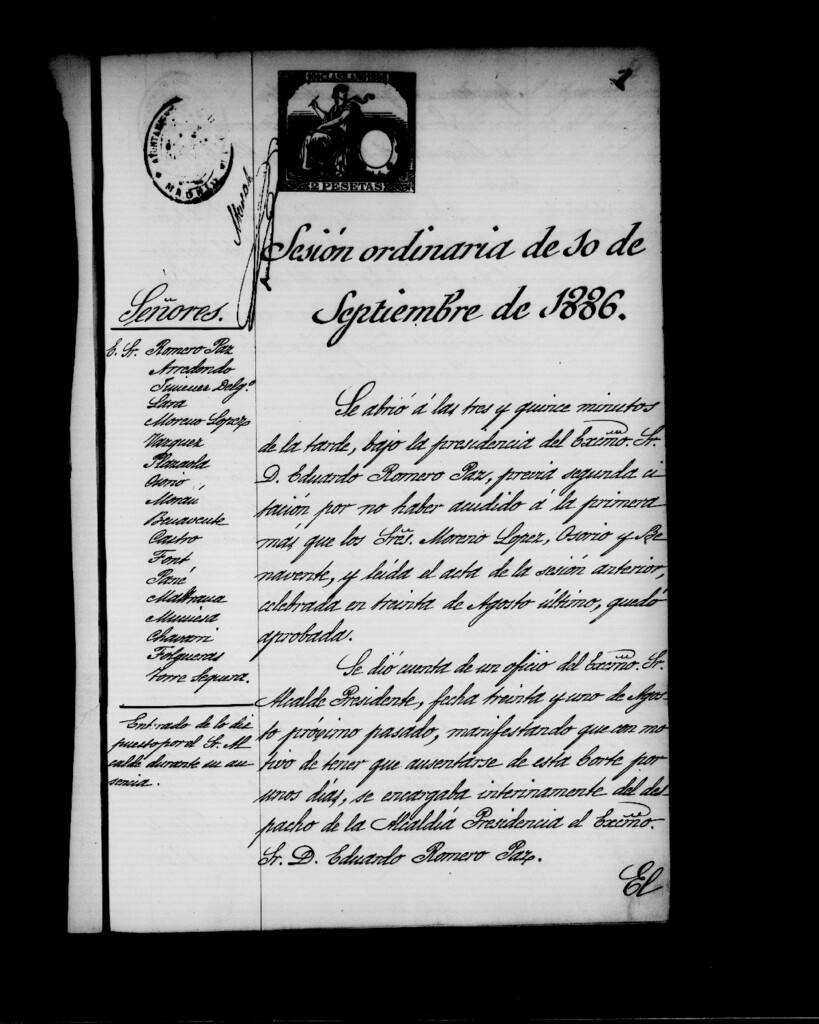 1
AYUNTAMIEN
MADRID
2 PESETAS
Sesión ordinaria de 10 de
Septiembre de 1886.
Señores.
E. Sr. Romero Paz
Arredondo
Jimenez Delgº
Lara
Moreno Lopez
Vazquez
Plazaola
Osorio
Morau
Benavente
Castro
Font
Pané
Maltrana
Muniesa
Chavarri
Folgueras
Torre Sequera.
Enterado de lo dis
puesto por el Sr. Al
calde durante su au
sencia.
Se abrió á las tres y quince minutos
de la tarde, bajo la presidencia del Excmo. Sr.
D. Eduardo Romero Paz, previa segunda ci
tación por no haber acudido á la primera
más que los Sres. Moreno Lopez, Osorio y Be
navente, y leída el acta de la sesión anterior,
celebrada en treinta de Agosto último, quedó
aprobada.
Se dió cuenta de un oficio del Excmo. Sr.
Alcalde Presidente, fecha treinta y uno de Agos-
to próximo pasado, manifestando que con mo
tivo de tener que ausentarse de esta Corte por
unos días, se encargaba interinamente del des
pacho de la Alcaldía Presidencia el Excmo.
Sr. D. Eduardo Romero Paz.
El